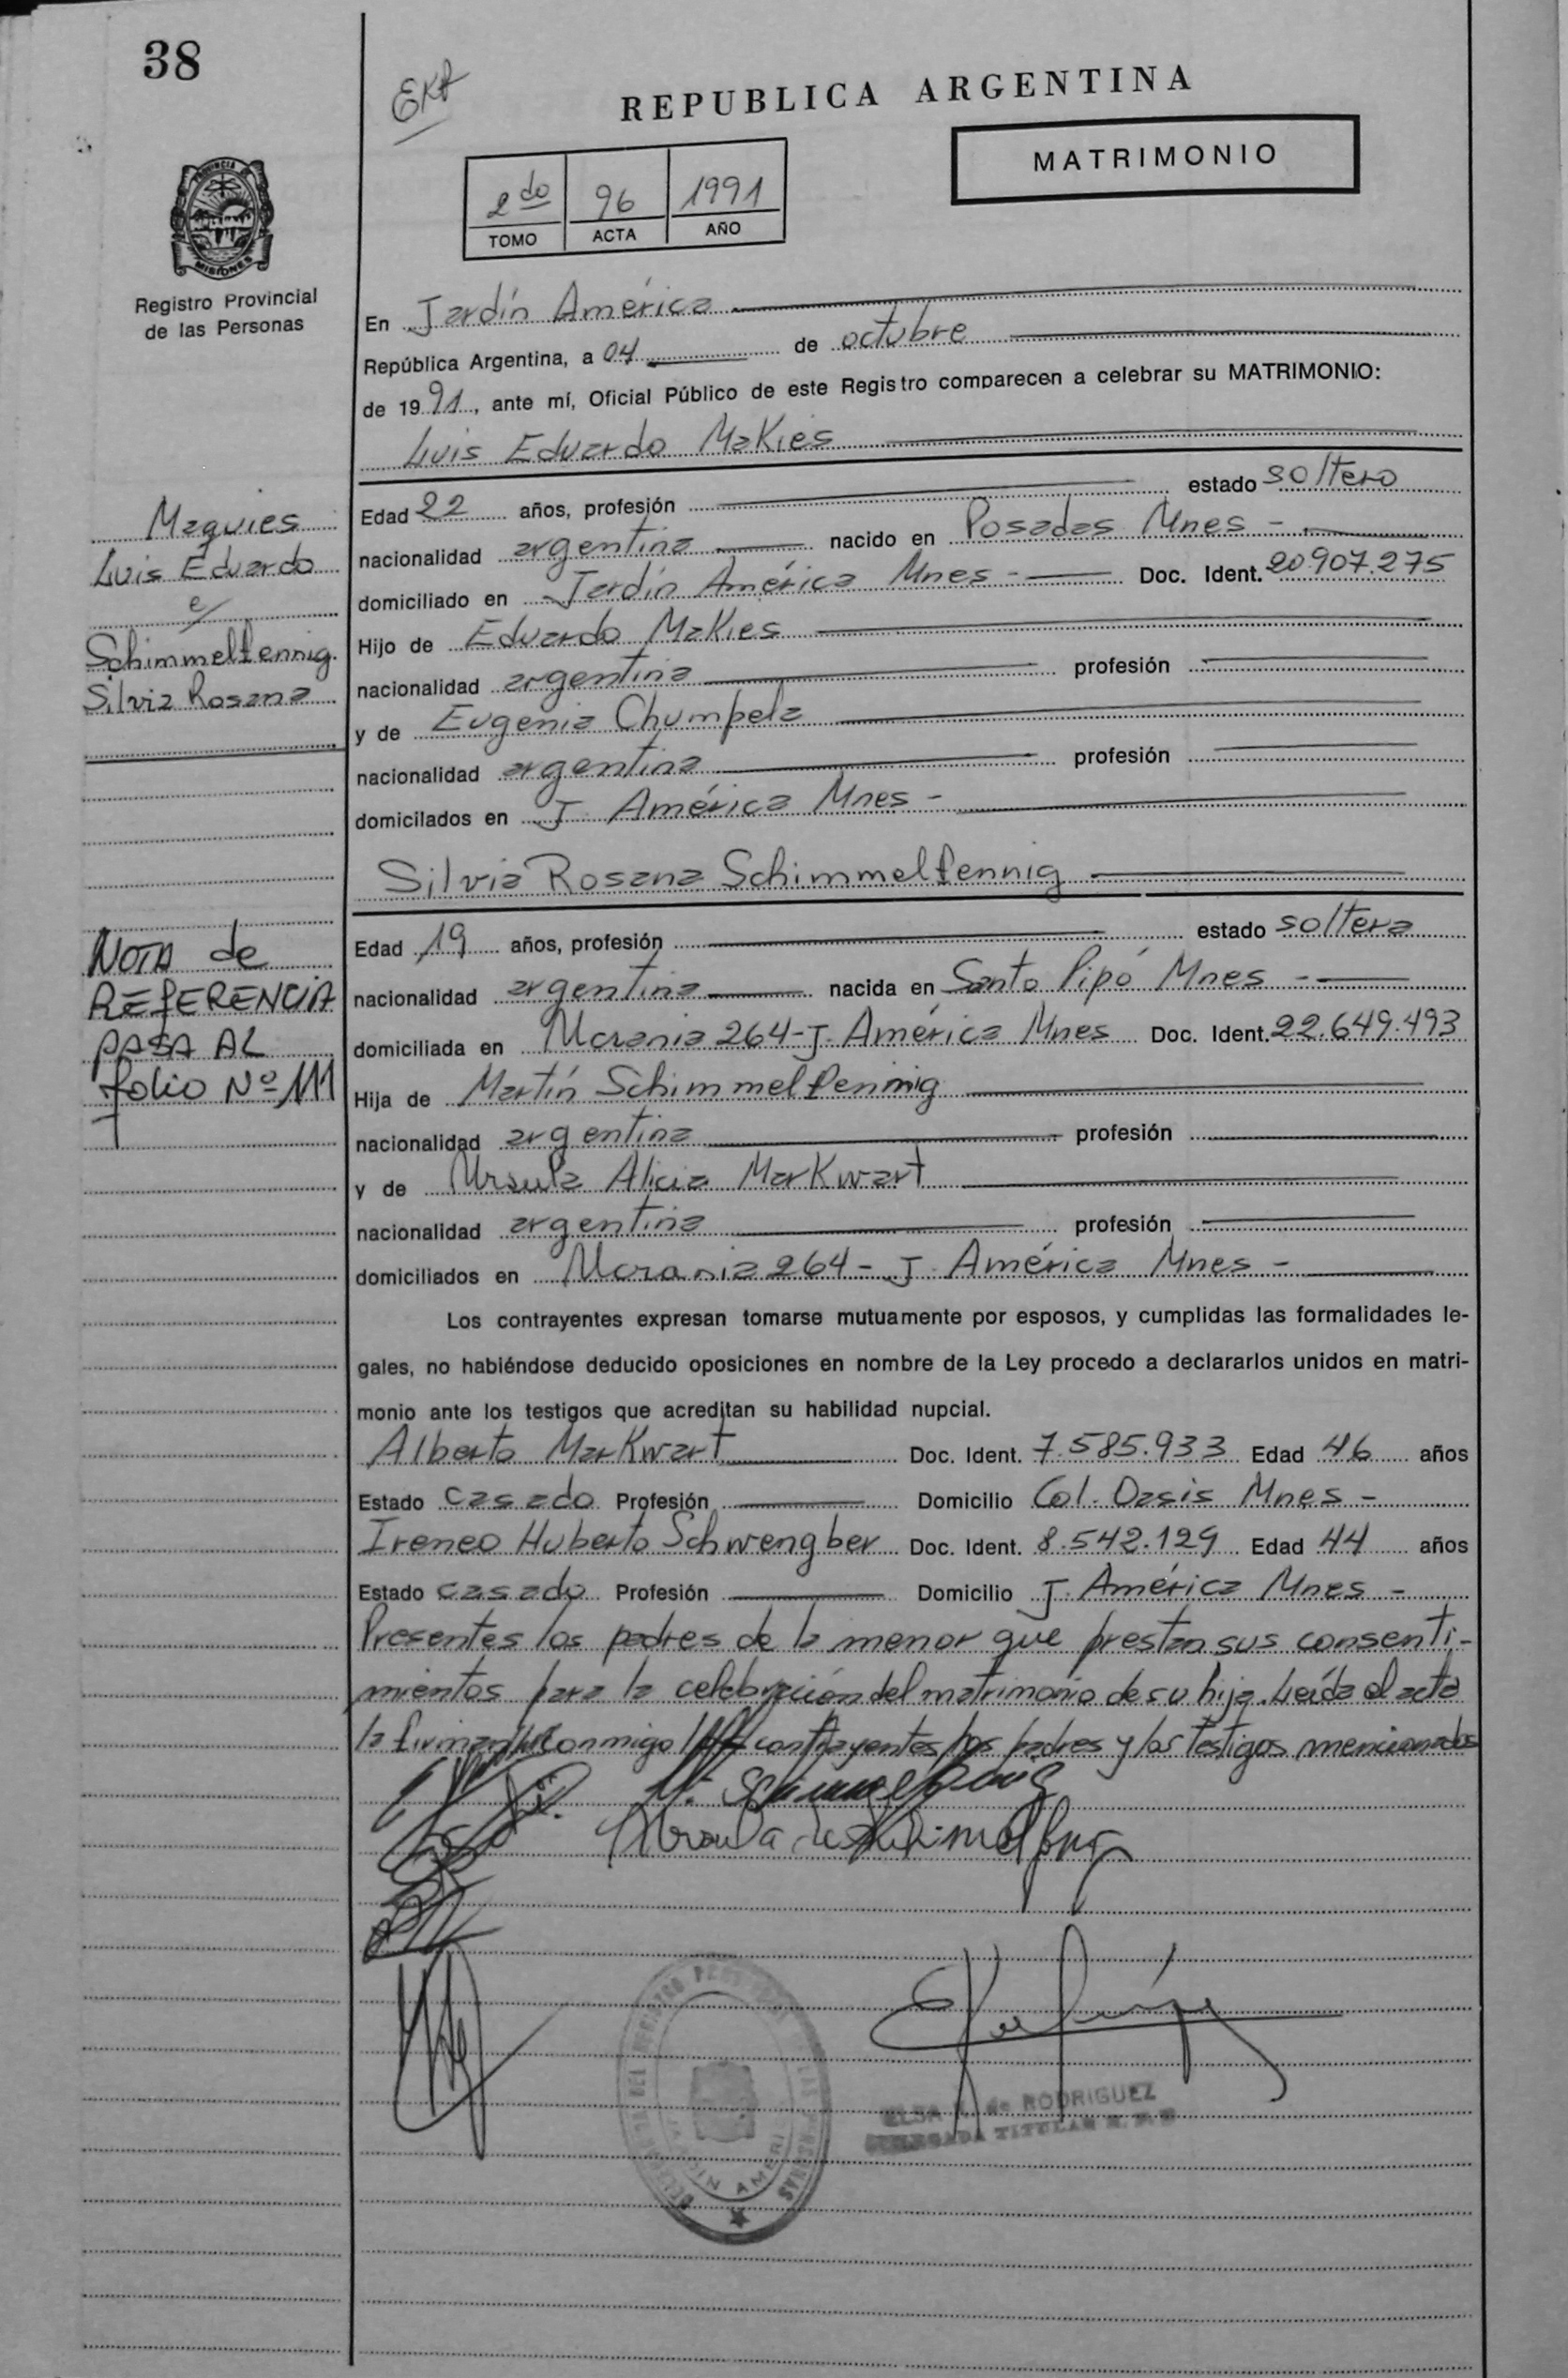 38
EKA
REPUBLICA ARGENTINA
MATRIMONIO
2do 96 1991
TOMO ACTA AÑO
PROVINCIA DE
MISIONES
Registro Provincial
de las Personas
En Jardín América
República Argentina, a 04 de octubre
de 1991, ante mí, Oficial Público de este Registro comparecen a celebrar su MATRIMONIO:
Luis Eduardo MaKies
Maquies
Luis Eduardo
c/
Schimmelfennig
Silvia Rosana
Edad 22 años, profesión estado soltero
nacionalidad argentina nacido en Posadas Mnes -
domiciliado en Jardín América Mnes - Doc. Ident. 20.907.275
Hijo de Eduardo MaKies
nacionalidad argentina profesión
y de Eugenia Chumpela
nacionalidad argentina profesión
domicilados en J. América Mnes -
Silvia Rosana Schimmelfennig
NOTA de
REfERENCIA
PASA AL
folio Nº 111
Edad 19 años, profesión estado soltera
nacionalidad argentina nacida en Santo Pipó Mnes -
domiciliada en Ucrania 264 - J. América Mnes Doc. Ident. 22.649.493
Hija de Martín Schimmelfennig
nacionalidad argentina profesión
y de Ursula Alicia MarKwart
nacionalidad argentina profesión
domiciliados en Ucrania 264 - J. América Mnes -
Los contrayentes expresan tomarse mutuamente por esposos, y cumplidas las formalidades le-
gales, no habiéndose deducido oposiciones en nombre de la Ley procedo a declararlos unidos en matri-
monio ante los testigos que acreditan su habilidad nupcial.
Alberto MarKwart Doc. Ident. 7.585.933 Edad 46 años
Estado casado Profesión Domicilio Col. Oasis Mnes -
Ireneo Huberto Schwengber Doc. Ident. 8.542.129 Edad 44 años
Estado casado Profesión Domicilio J. América Mnes -
Presentes los padres de la menor que prestan sus consenti-
mientos para la celebración del matrimonio de su hija. Leída el acta
la firman conmigo contrayentes los padres y los testigos mencionados
Ursula de
de RODRIGUEZ
DELEGADA TITULAR